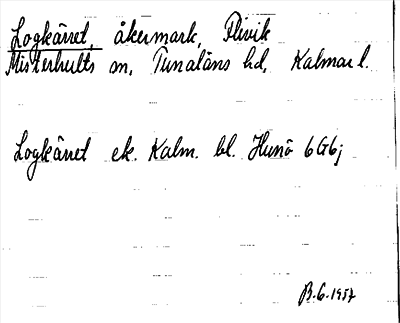 Logkärret, åkermark, Flivik
Misterhults sn, Tunaläns hd, Kalmar l.
Logkärret ek. Kalm. bl. Hunö 6G6j
B.G. 1957